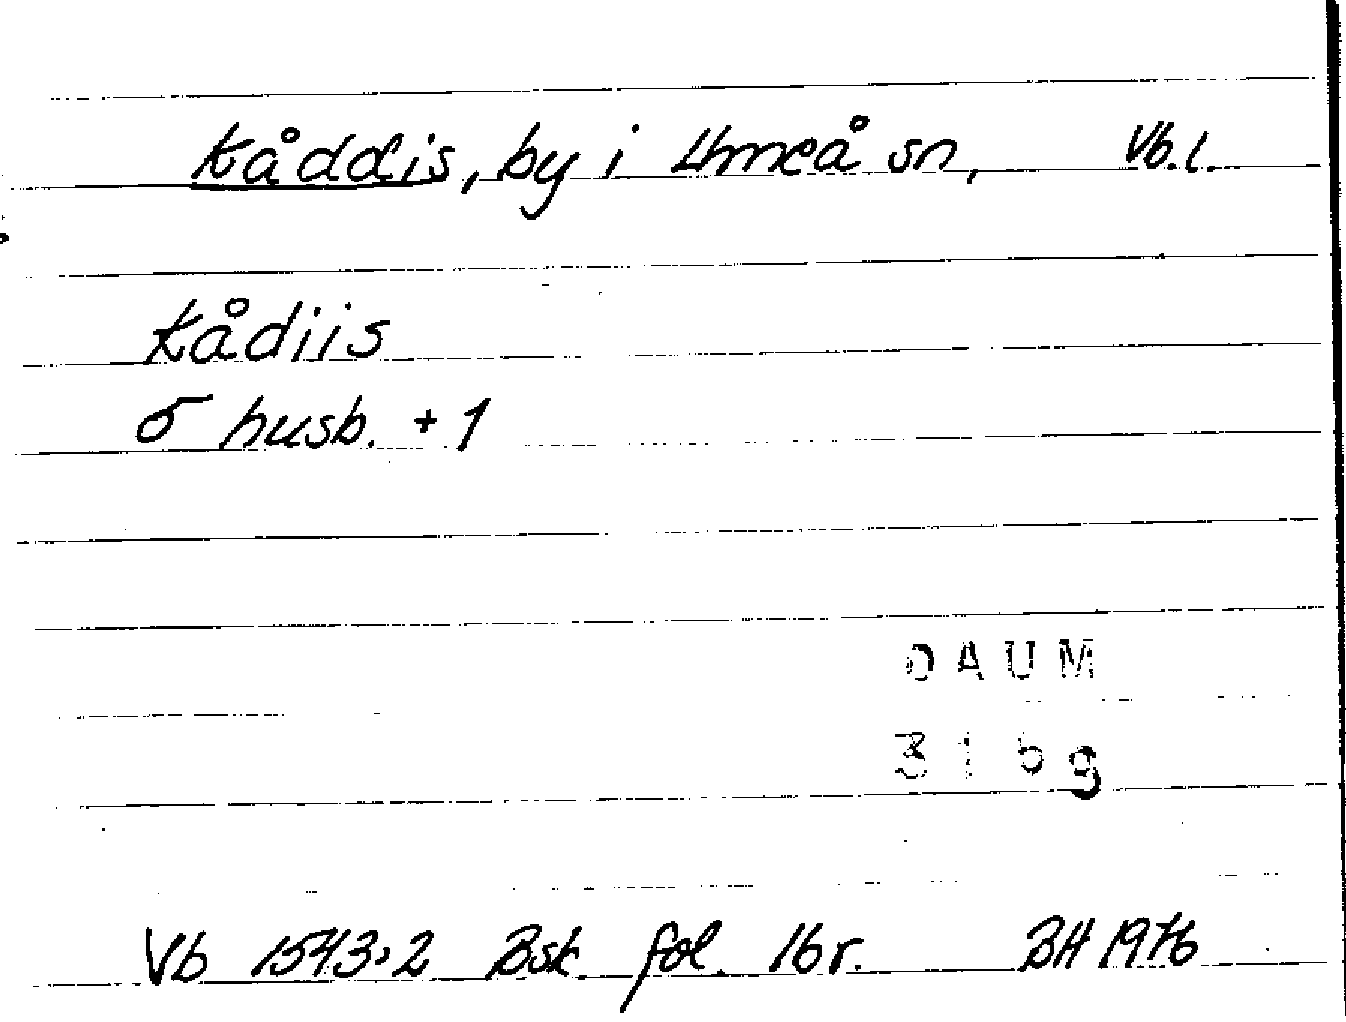 Kåddis, by i Umeå sn, Vb. l.
Kådiis
5 husb. + 1
DAUM
3159
Vb 1543:2 Bsk. fol. 16 r. BH 1976